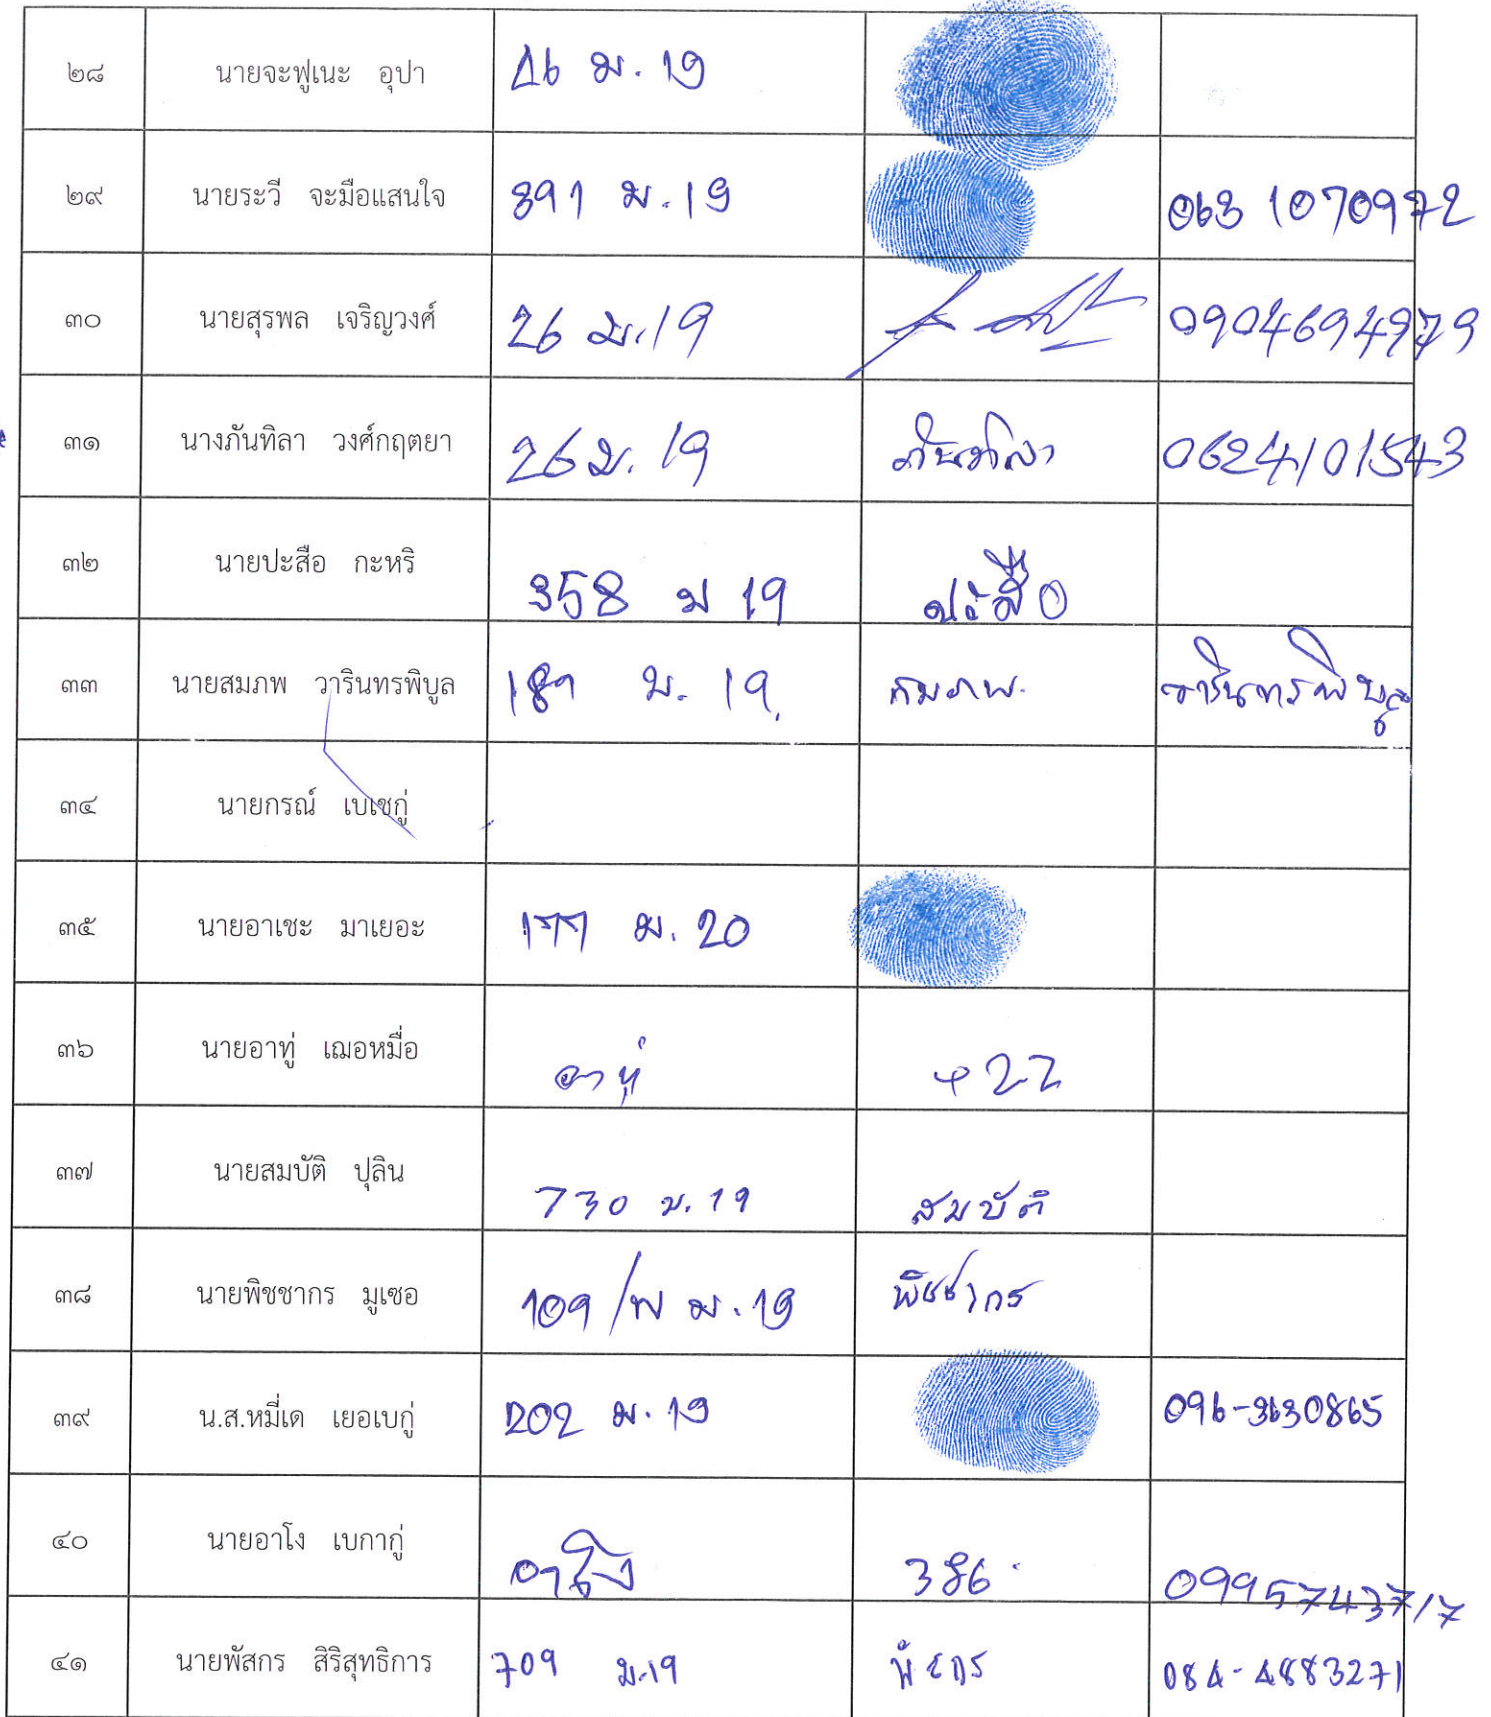 ๒๘ นายจะฟูเนะ อุปา ม. 19
๒๙ นายระวี จะมือแสนใจ 391 ม. 19 063 1070972
๓๐ นายสุรพล เจริญวงศ์ 26 ม. 19 0904694979
๓๑ นางภันทิลา วงศ์กฤตยา 26 ม. 19 ภันทิลา 0624101543
๓๒ นายปะสือ กะหริ 358 ม 19 ปะสือ
๓๓ นายสมภพ วารินทรพิบูล 181 ม. 19. สมภพ. วารินทรพิบูล
๓๔ นายกรณ์ เบเชกู่
๓๕ นายอาเชะ มาเยอะ ม. 20
๓๖ นายอาทู่ เฌอหมื่อ อาทู่
๓๗ นายสมบัติ ปุลิน 730 ม. 19 สมบัติ
๓๘ นายพิชชากร มูเซอ 109/พ ม. 19 พิชชากร
๓๙ น.ส.หมี่เด เยอเบกู่ 202 ม. 19 096-3630865
๔๐ นายอาโง เบกากู่ อาโง 386 0995743717
๔๑ นายพัสกร สิริสุทธิการ 709 ม.19 พัสกร 084-4883271